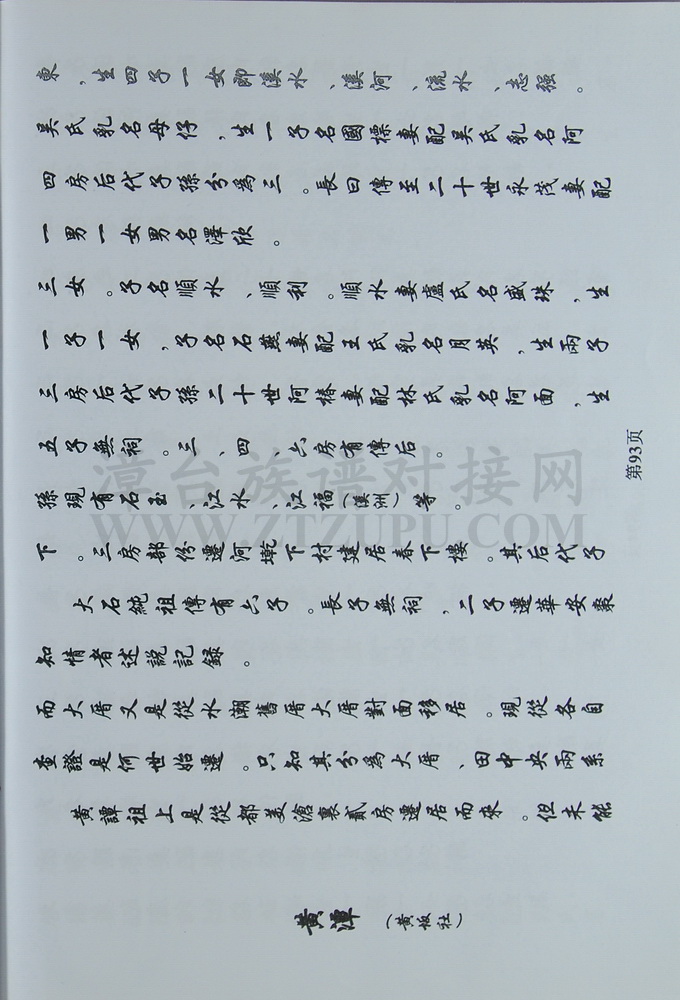 黃潭（黃坂社）
黃譚祖上是從都美滄裏貳房遷居而來。但未能
查證是何世始遷。只知其分為大厝、田中央兩系
而大厝又是從水潮舊厝大厝對面移居。現從各自
知情者述說記録。
大石純祖傳有六子。長子無祠，二子遷華安棗
下。三房部份遷河墘下村建居春下樓。其后代子
孫現有石玉、江水、江福（溪洲）等。
五子無祠。三、四、六房有傳后。
三房后代子孫二十世阿椿妻配林氏乳名阿面，生
一子一女，子名石燕妻配王氏乳名月英，生兩子
三女。子名順水、順利。順水妻盧氏名盛珠，生
一男一女男名澤欣。
四房后代子孫分為三。長曰傳至二十世永茂妻配
吴氏乳名毋仔，生一子名國標妻配吴氏乳名阿
東，生四子一女即溪水、溪河、流水、志强。
第93页
漳台族谱对接网
WWW.ZTZUPU.COM